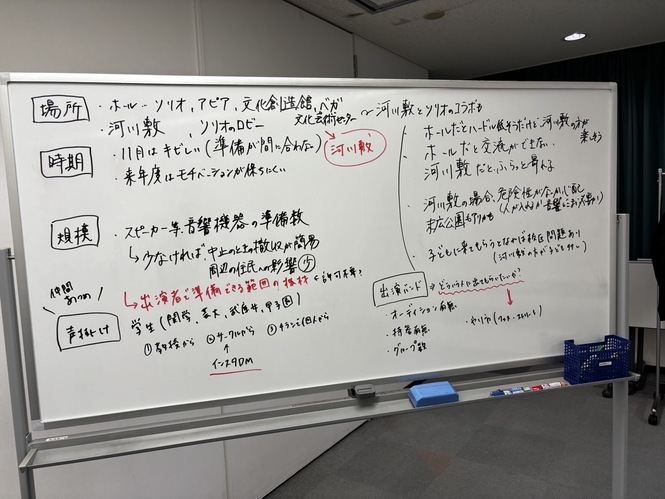 場所
・ホール…ソリオ、アピア、文化創造館、ベガ
文化芸術センター
・河川敷、ソリオのロビー
〜河川敷とソリオのコラボも
時期
・11月はキビしい(準備が間に合わない)
河川敷
・来年度はモチベーションが保ちにくい
ホールだとハードル低そうだけど、河川敷の方が楽しそう
ホールだと交流ができない
河川敷だとふらっと寄れる
規模
・スピーカー等音響機器の準備数
↳少なければ、中止のときの撤収が簡易
周辺の住民への影響少
↳出演者で準備できる範囲の機材
←許可不要?
河川敷の場合、危険性がないか心配
末広公園もアリかも
子どもに来てもらうとなれば校区問題あり
(河川敷の方が子ども
仲間あつめ!
声掛け
学生(関学、
①高校から ②サークルから ③チラシで個人から
↑
インスタDM
出演バンド
⇒どういう人に出てもらいたいか?
・オーディション有無
・持ち曲有無
・グループ数